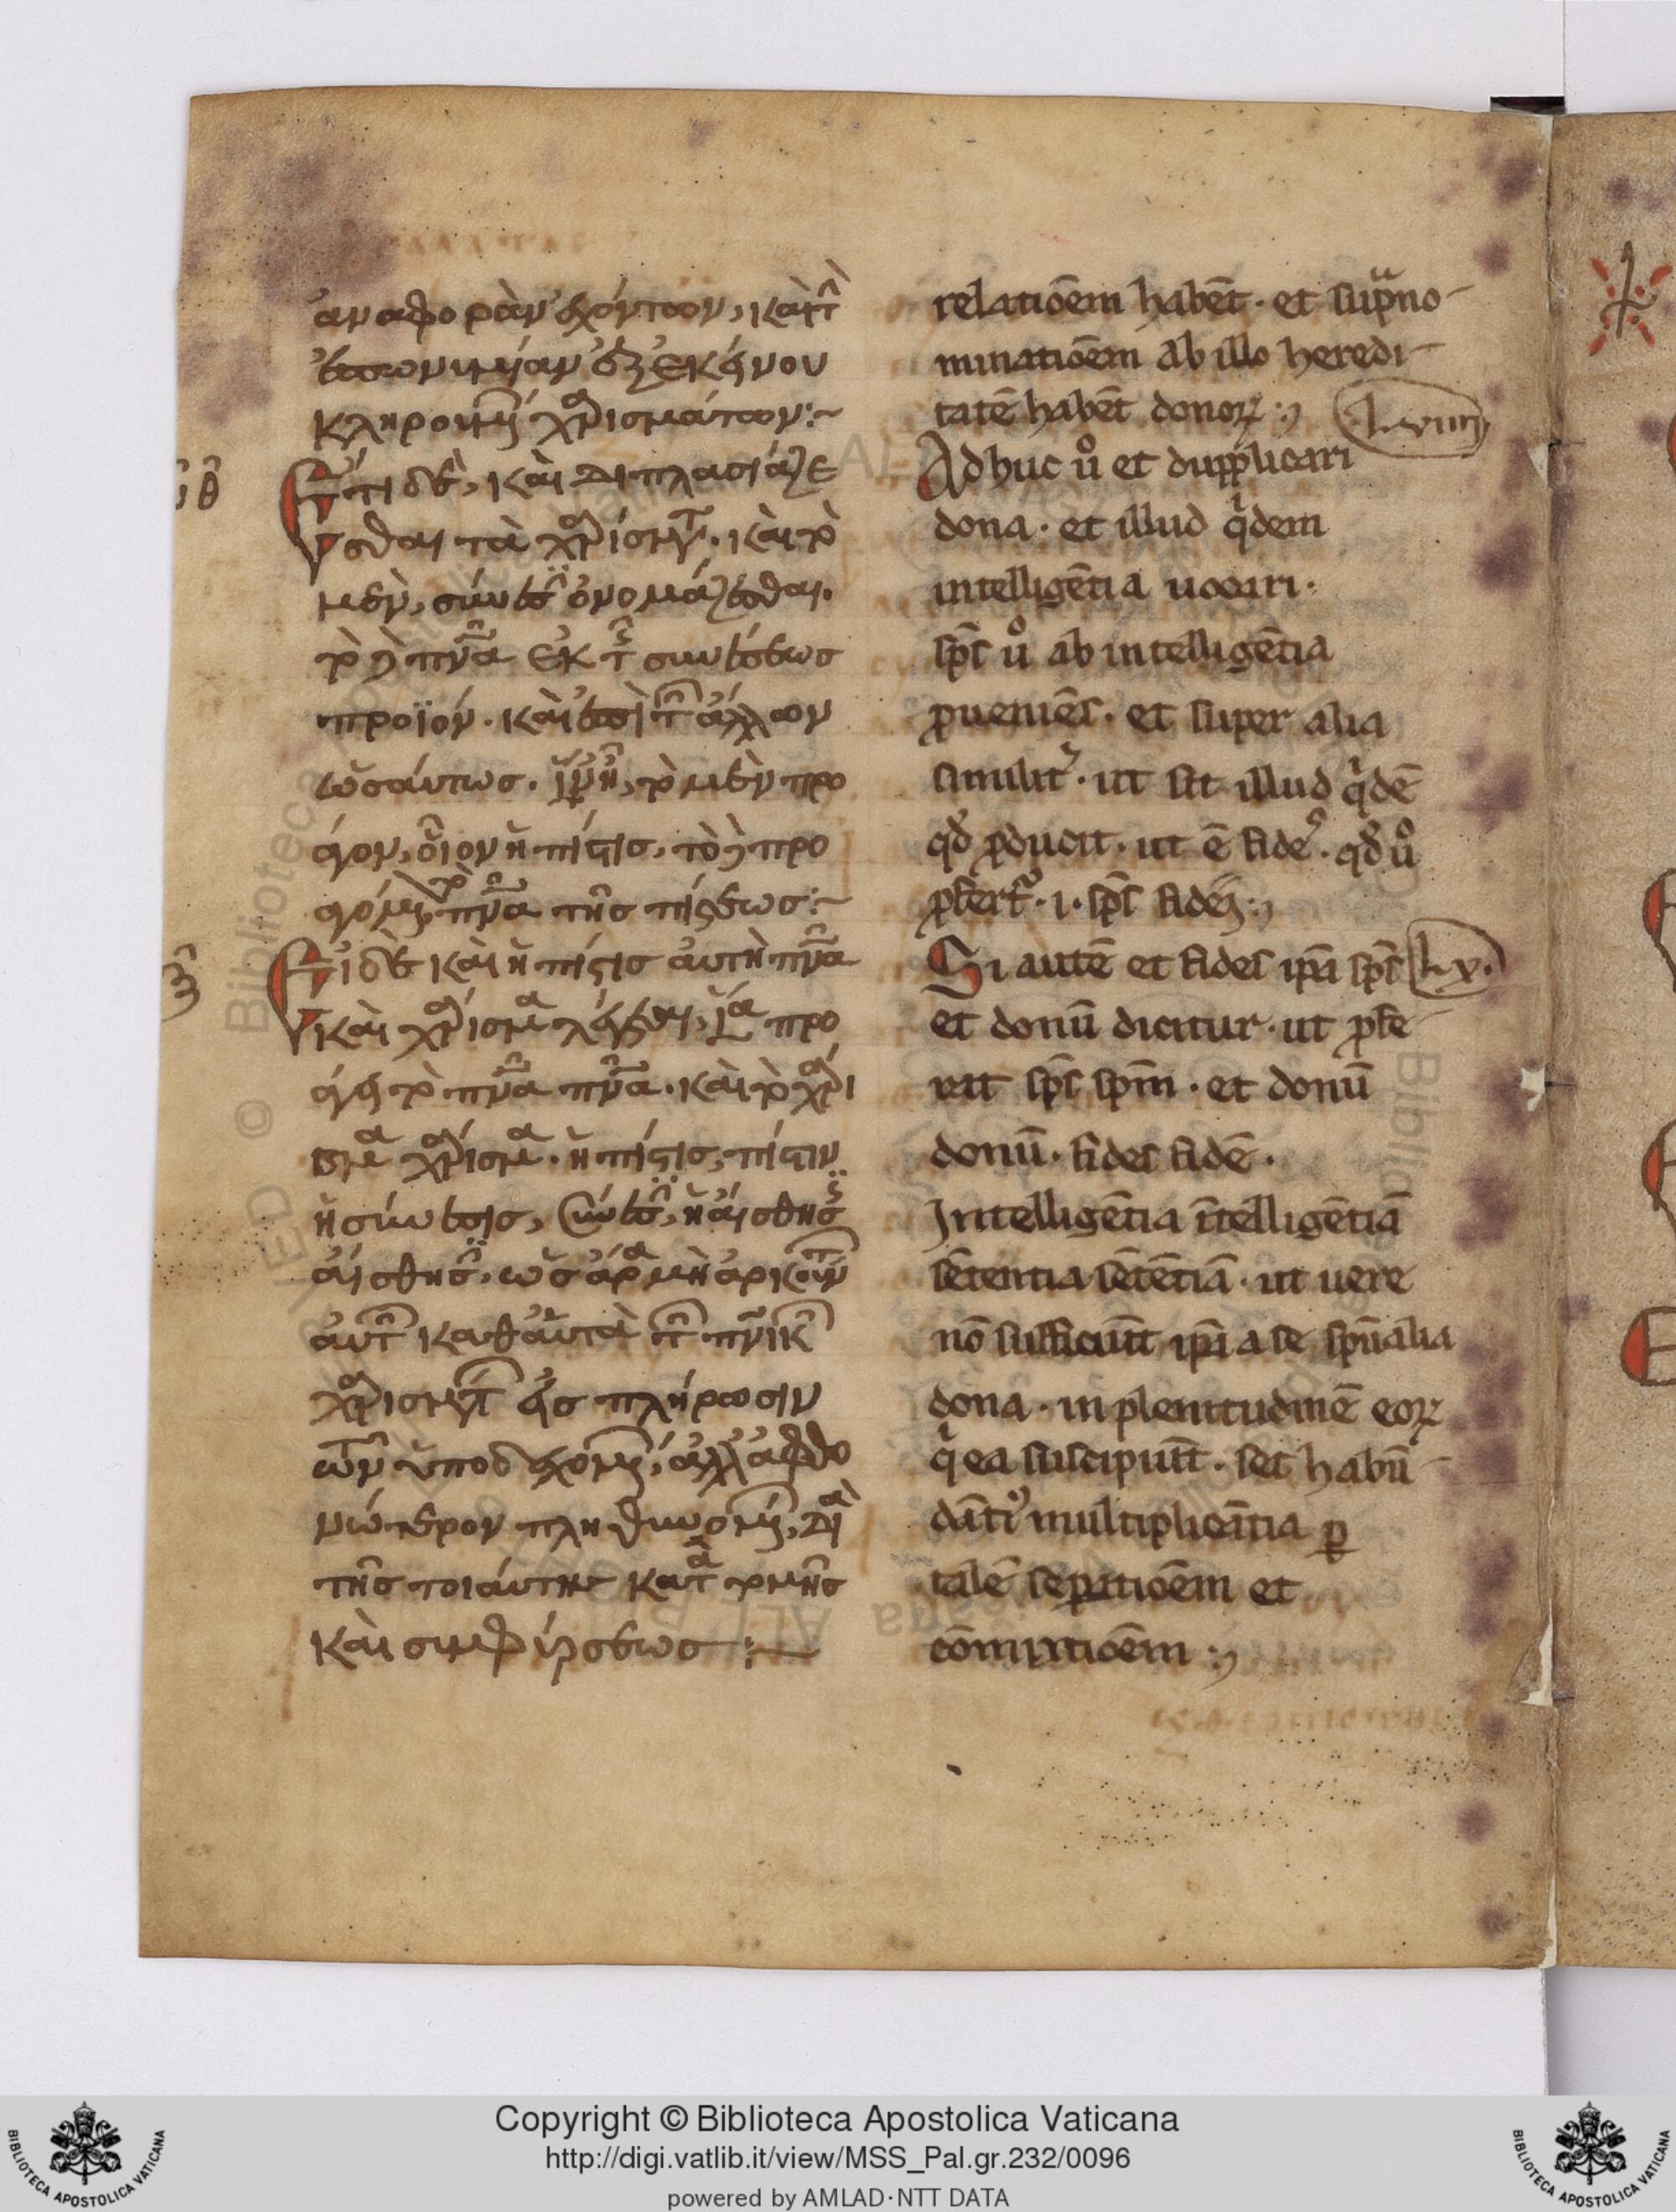 ἀναφορὰν ἐχόντων, καὶ τὴν
ἐπωνυμίαν ἐξ ἐκείνου
κληρονομεῖν χαρισμάτων:~
νθ
Ἔτι δὲ, καὶ διπλασιάζε
σθαι τὰ χαρίσματα. καὶ τὸ
μὲν, σύνεσιν ὀνομάζεσθαι.
τὸ δὲ πνα ἐκ τῆς συνέσεως
προϊόν. καὶ ἐπὶ τῶν ἄλλων
ὡσαύτως. ἵν᾽ ᾖ, τὸ μὲν προ
άγον, οἷον ἡ πίστις, τὸ δὲ προ
αγόμενον, τὸ πνα τῆς πίστεως:~
ξ
Εἰ δὲ καὶ ἡ πίστις αὐτὴ πνα
καὶ χάρισμα λέγεται, ἵνα προ
άγῃ τὸ πνα πνα. καὶ τὸ χάρι
σμα χάρισμα. ἡ πίστις, πίστιν
ἡ σύνεσις, σύνεσιν, ἡ αἴσθησις
αἴσθησιν, ὡς ἄρα μὴ ἀρκούντων
αὐτῶν καθ᾽ αὑτὰ τῶν πνικῶν
χαρισμάτων εἰς πλήρωσιν
τῶν ὑποδεχομένων, ἀλλ᾽ ἀφθο
νώτερον πληθυνομένων, διὰ
τῆς τοιαύτης κατατομῆς
καὶ συμφύρσεως:~
relatioēm habēt. et sup̄no-
minatioēm ab illo heredi-
tatē habēt donoꝝ:
lviiij
Adhuc ů et dupplicari
dona. et illud qͥdem
intelligētia uocari.
sp̄s ů ab intelligētia
ꝓueniēs. et super alia
similit᷑. ut sit illud qͥdē
qd̓ ꝓducit. ut ē fideꝰ. qd̓ ů
ꝓfert᷑. i. sp̄s fidei:
Si autē et fides ip̄a sp̄s
lx.
et donū dicitur. ut ꝓfe-
rat sp̄s sp̄m. et donū
donū. fides fidē.
Intelligētia ītelligētiā
sētentia sētētiā. ut uere
nō sufficiūt ip̄a a se sp̄ualia
dona. in plenitudinē eoꝝ
qͥ ea suscipiūt. set habū-
dātiꝰ multiplicātia ꝑ
talē seꝑatioēm et
cōmixtioēm:
Copyright © Biblioteca Apostolica Vaticana
http://digi.vatlib.it/view/MSS_Pal.gr.232/0096
powered by AMLAD·NTT DATA
BIBLIOTECA APOSTOLICA VATICANA
BIBLIOTECA APOSTOLICA VATICANA